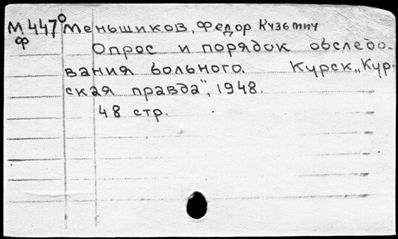 М447⁰ Меньшиков, Федор Кузьмич
ф
Опрос и порядок обследо-
вания больного. Курск „Кур-
ская правда", 1948.
48 стр.